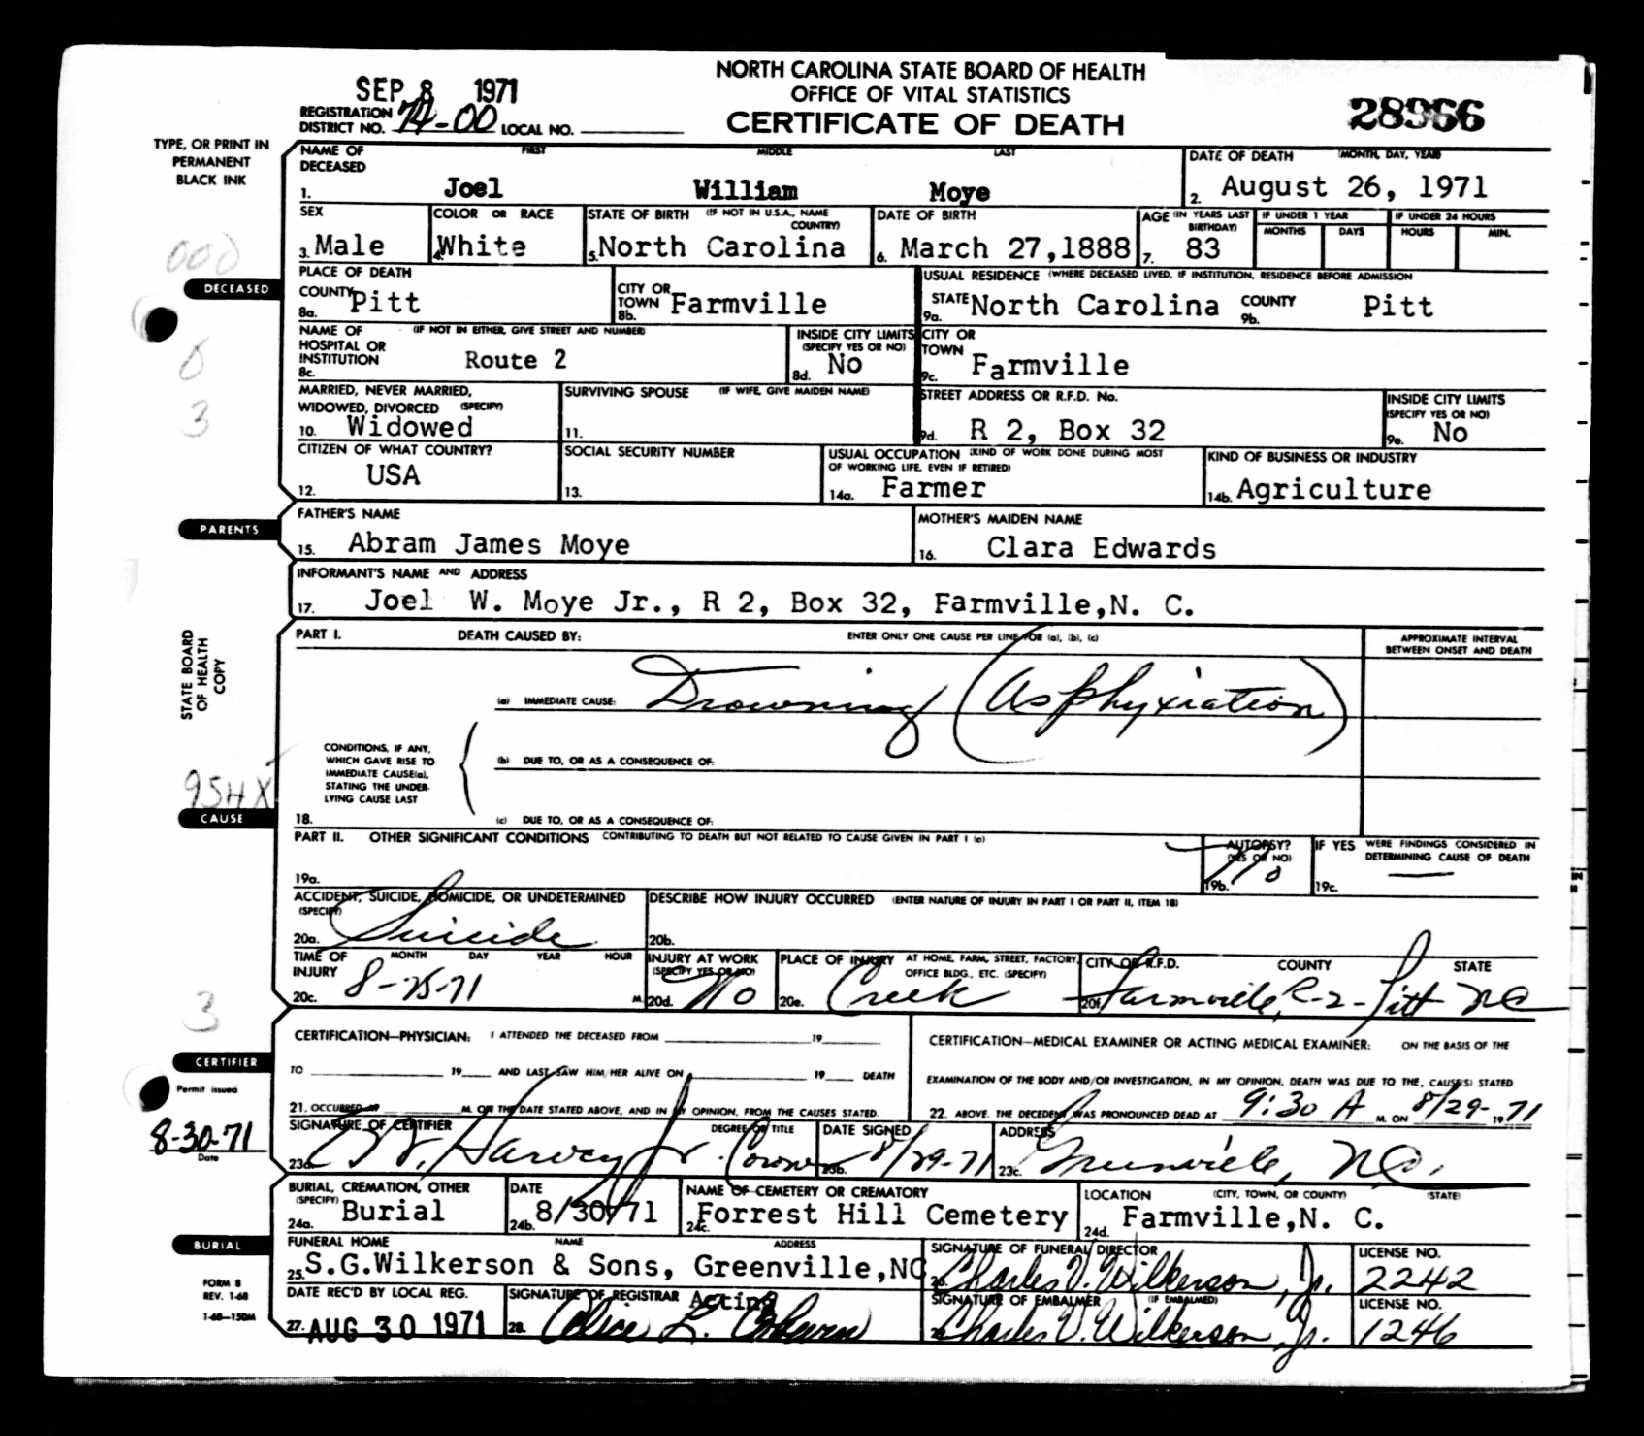 NORTH CAROLINA STATE BOARD OF HEALTH
OFFICE OF VITAL STATISTICS
CERTIFICATE OF DEATH
SEP 8 1971
28966
REGISTRATION DISTRICT NO. 74-00 LOCAL NO.
TYPE, OR PRINT IN
PERMANENT
BLACK INK
NAME OF DECEASED FIRST MIDDLE LAST
1. Joel William Moye
DATE OF DEATH (MONTH, DAY, YEAR)
2. August 26, 1971
SEX
3. Male
COLOR OR RACE
4. White
STATE OF BIRTH (IF NOT IN U.S.A., NAME COUNTRY)
5. North Carolina
DATE OF BIRTH
6. March 27,1888
AGE (IN YEARS LAST BIRTHDAY)
7. 83
IF UNDER 1 YEAR
MONTHS DAYS
IF UNDER 24 HOURS
HOURS MIN.
000
DECEASED
PLACE OF DEATH
COUNTY
8a. Pitt
CITY OR TOWN
8b. Farmville
USUAL RESIDENCE (WHERE DECEASED LIVED. IF INSTITUTION, RESIDENCE BEFORE ADMISSION
STATE
9a. North Carolina
COUNTY
9b. Pitt
NAME OF HOSPITAL OR INSTITUTION (IF NOT IN EITHER, GIVE STREET AND NUMBER)
8c. Route 2
INSIDE CITY LIMITS (SPECIFY YES OR NO)
8d. No
CITY OR TOWN
9c. Farmville
0
3
MARRIED, NEVER MARRIED, WIDOWED, DIVORCED (SPECIFY)
10. Widowed
SURVIVING SPOUSE (IF WIFE, GIVE MAIDEN NAME)
11.
STREET ADDRESS OR R.F.D. No.
9d. R 2, Box 32
INSIDE CITY LIMITS (SPECIFY YES OR NO)
9e. No
CITIZEN OF WHAT COUNTRY?
12. USA
SOCIAL SECURITY NUMBER
13.
USUAL OCCUPATION (KIND OF WORK DONE DURING MOST OF WORKING LIFE, EVEN IF RETIRED)
14a. Farmer
KIND OF BUSINESS OR INDUSTRY
14b. Agriculture
PARENTS
FATHER'S NAME
15. Abram James Moye
MOTHER'S MAIDEN NAME
16. Clara Edwards
INFORMANT'S NAME AND ADDRESS
17. Joel W. Moye Jr., R 2, Box 32, Farmville,N. C.
STATE BOARD
OF HEALTH
COPY
PART I. DEATH CAUSED BY: ENTER ONLY ONE CAUSE PER LINE FOR (a), (b), (c)
APPROXIMATE INTERVAL BETWEEN ONSET AND DEATH
(a) IMMEDIATE CAUSE: Drowning (Asphyxiation)
CONDITIONS, IF ANY,
WHICH GAVE RISE TO
IMMEDIATE CAUSE(a),
STATING THE UNDER-
LYING CAUSE LAST
(b) DUE TO, OR AS A CONSEQUENCE OF:
18. (c) DUE TO, OR AS A CONSEQUENCE OF:
954X
CAUSE
PART II. OTHER SIGNIFICANT CONDITIONS CONTRIBUTING TO DEATH BUT NOT RELATED TO CAUSE GIVEN IN PART I (a)
19a.
AUTOPSY? (YES OR NO)
19b. No
IF YES WERE FINDINGS CONSIDERED IN DETERMINING CAUSE OF DEATH
19c.
ACCIDENT, SUICIDE, HOMICIDE, OR UNDETERMINED (SPECIFY)
20a. Suicide
DESCRIBE HOW INJURY OCCURRED (ENTER NATURE OF INJURY IN PART I OR PART II, ITEM 18)
20b.
TIME OF INJURY MONTH DAY YEAR HOUR
20c. 8-25-71 M.
INJURY AT WORK (SPECIFY YES OR NO)
20d. No
PLACE OF INJURY AT HOME, FARM, STREET, FACTORY, OFFICE BLDG., ETC. (SPECIFY)
20e. Creek
CITY OR R.F.D. COUNTY STATE
20f. Farmville, R-2- Pitt NC
3
CERTIFIER
CERTIFICATION—PHYSICIAN: I ATTENDED THE DECEASED FROM 19
TO 19 AND LAST SAW HIM/HER ALIVE ON 19 DEATH
21. OCCURRED AT M. ON THE DATE STATED ABOVE, AND IN MY OPINION, FROM THE CAUSES STATED.
CERTIFICATION—MEDICAL EXAMINER OR ACTING MEDICAL EXAMINER: ON THE BASIS OF THE
EXAMINATION OF THE BODY AND/OR INVESTIGATION, IN MY OPINION, DEATH WAS DUE TO THE, CAUSE(S) STATED
22. ABOVE. THE DECEDENT WAS PRONOUNCED DEAD AT 9:30 A M. ON 8/29- 1971
Permit issued
8-30-71
Date
SIGNATURE OF CERTIFIER DEGREE OR TITLE
23a. Harvey Jr. Coroner
DATE SIGNED
23b. 8/29-71
ADDRESS
23c. Greenville, NC.
BURIAL, CREMATION, OTHER (SPECIFY)
24a. Burial
DATE
24b. 8/30/71
NAME OF CEMETERY OR CREMATORY
24c. Forrest Hill Cemetery
LOCATION (CITY, TOWN, OR COUNTY) (STATE)
24d. Farmville,N. C.
BURIAL
FUNERAL HOME NAME ADDRESS
25. S.G.Wilkerson & Sons, Greenville,NC
SIGNATURE OF FUNERAL DIRECTOR
26. Charles V. Wilkerson, Jr.
LICENSE NO.
2242
FORM 8
REV. 1-68
1-68—150M
DATE REC'D BY LOCAL REG.
27. AUG 30 1971
SIGNATURE OF REGISTRAR Acting
28. Alice L.
SIGNATURE OF EMBALMER (IF EMBALMED)
Charles V. Wilkerson, Jr.
LICENSE NO.
1246